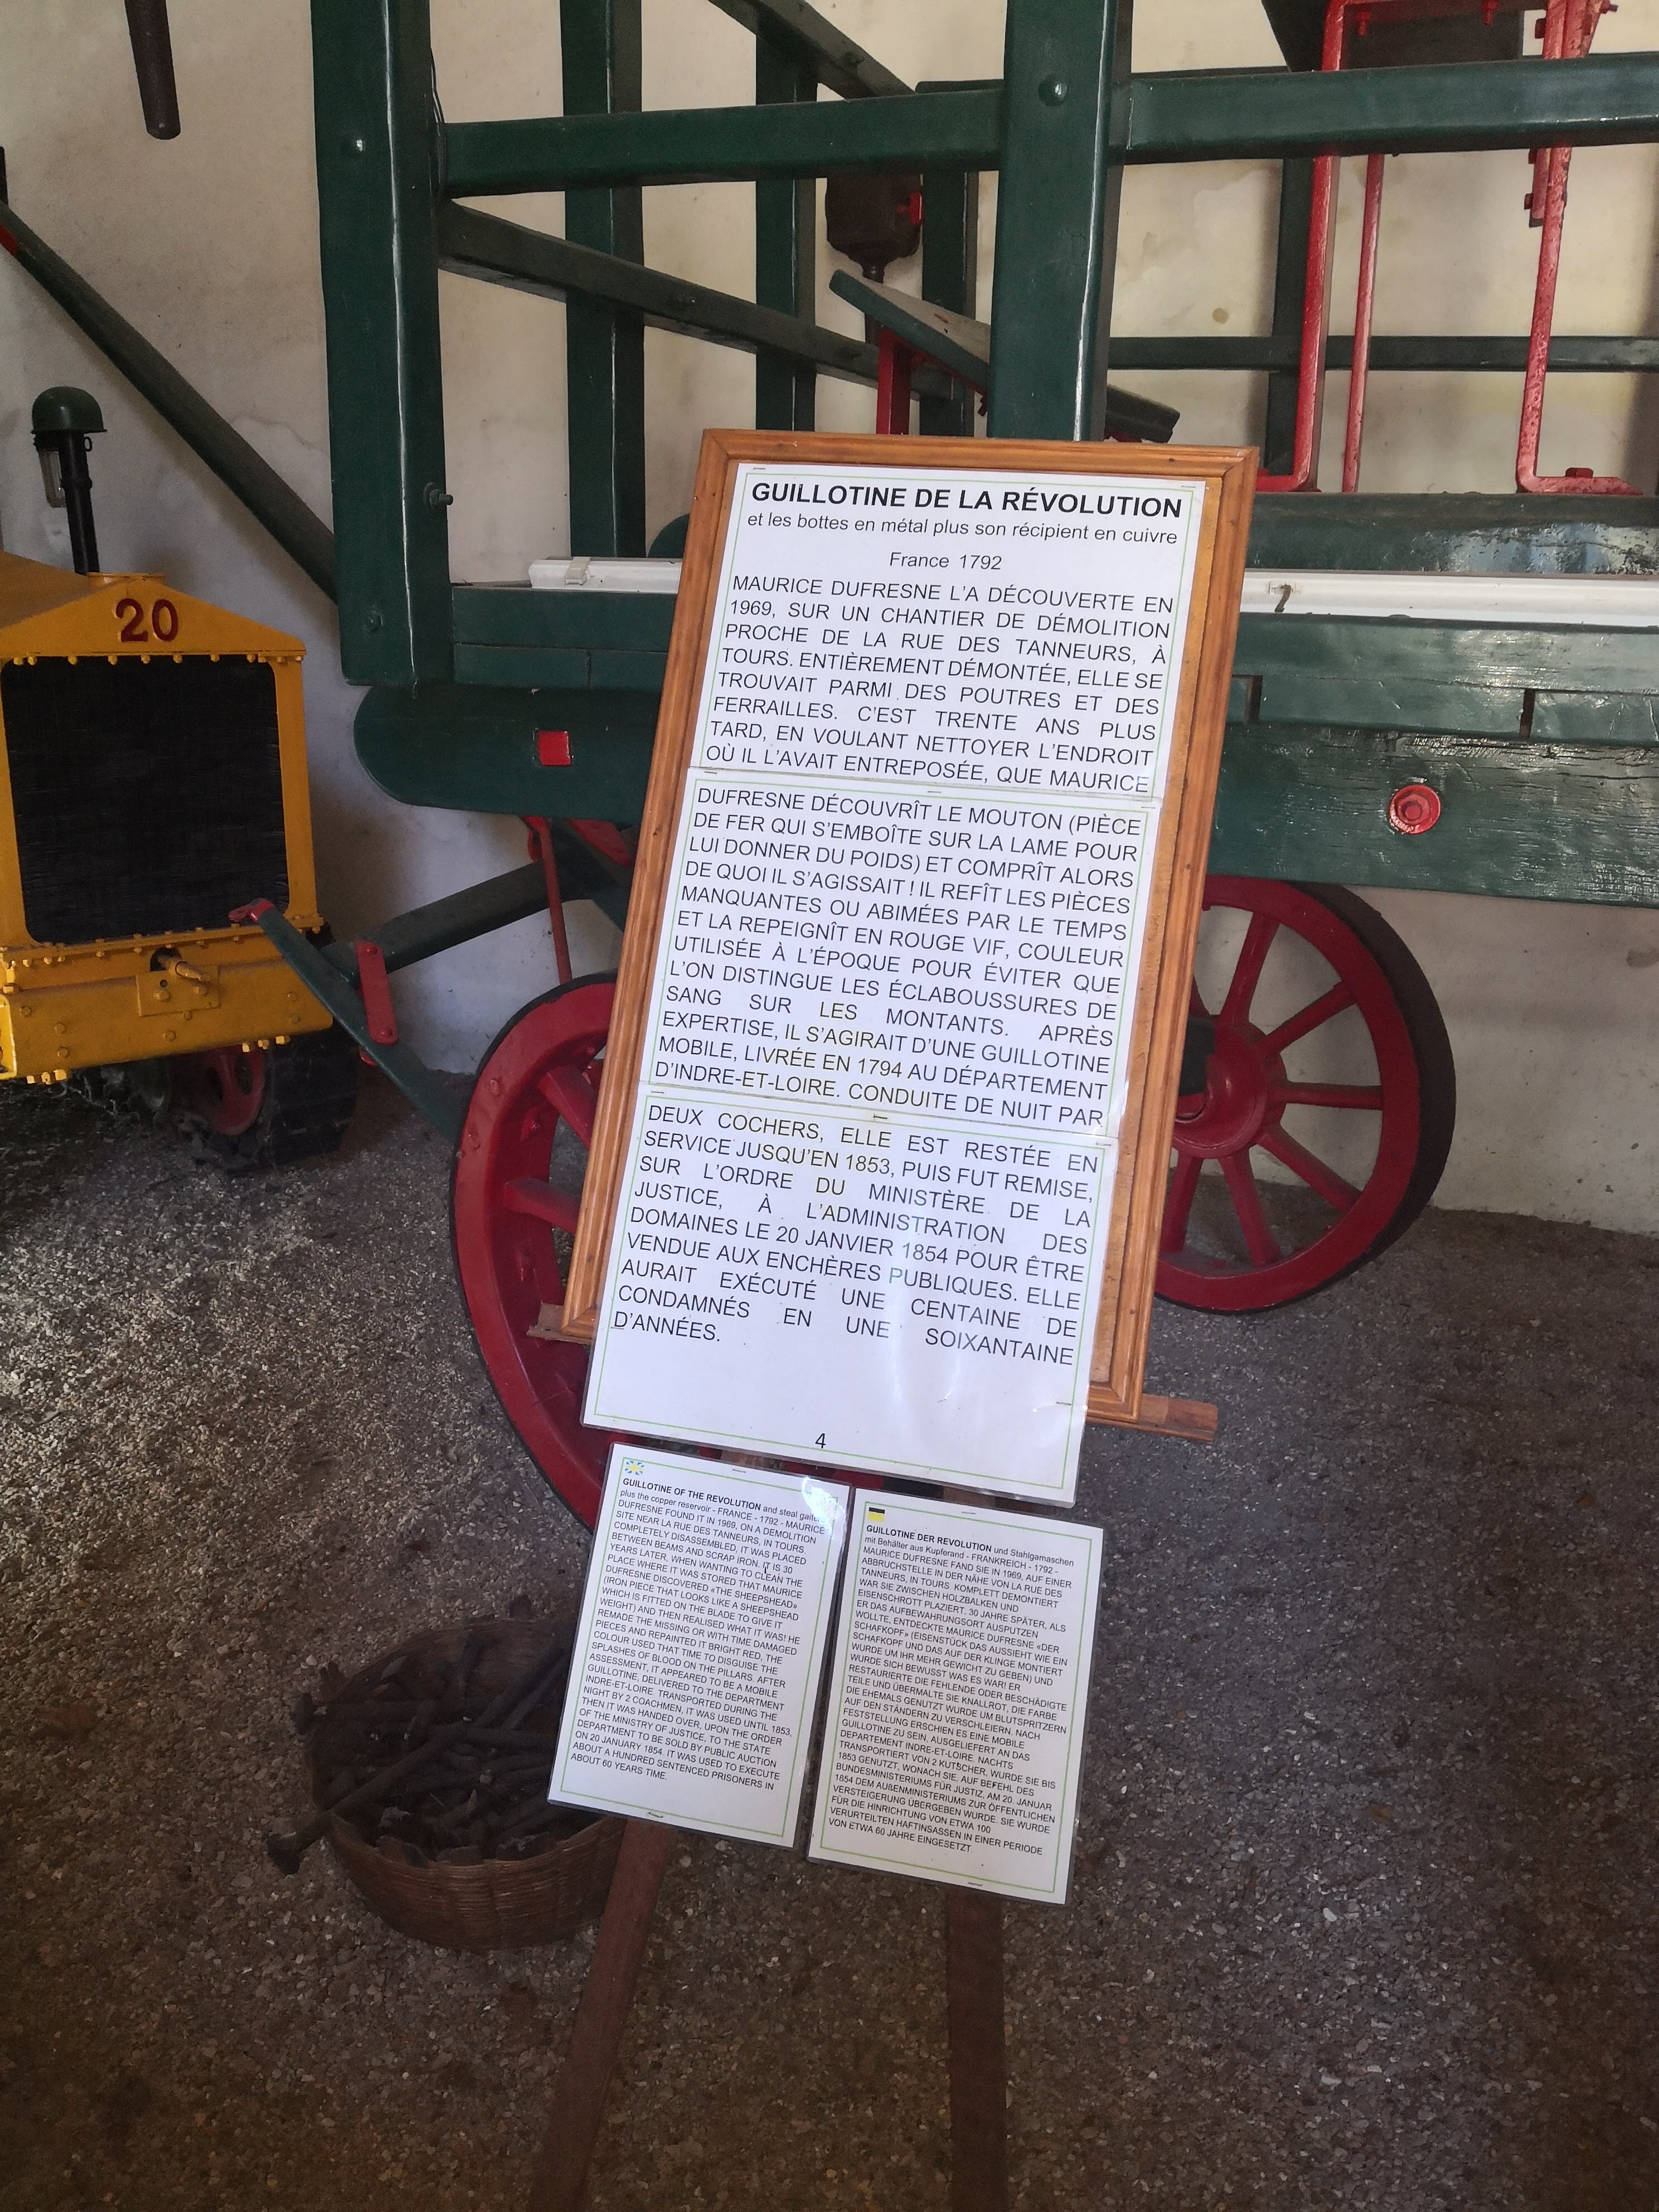 20
GUILLOTINE DE LA RÉVOLUTION
et les bottes en métal plus son récipient en cuivre
France 1792
MAURICE DUFRESNE L'A DÉCOUVERTE EN
1969, SUR UN CHANTIER DE DÉMOLITION
PROCHE DE LA RUE DES TANNEURS, À
TOURS. ENTIÈREMENT DÉMONTÉE, ELLE SE
TROUVAIT PARMI DES POUTRES ET DES
FERRAILLES. C'EST TRENTE ANS PLUS
TARD, EN VOULANT NETTOYER L'ENDROIT
OÙ IL L'AVAIT ENTREPOSÉE, QUE MAURICE
DUFRESNE DÉCOUVRÎT LE MOUTON (PIÈCE
DE FER QUI S'EMBOÎTE SUR LA LAME POUR
LUI DONNER DU POIDS) ET COMPRÎT ALORS
DE QUOI IL S'AGISSAIT ! IL REFÎT LES PIÈCES
MANQUANTES OU ABIMÉES PAR LE TEMPS
ET LA REPEIGNÎT EN ROUGE VIF, COULEUR
UTILISÉE À L'ÉPOQUE POUR ÉVITER QUE
L'ON DISTINGUE LES ÉCLABOUSSURES DE
SANG SUR LES MONTANTS. APRÈS
EXPERTISE, IL S'AGIRAIT D'UNE GUILLOTINE
MOBILE, LIVRÉE EN 1794 AU DÉPARTEMENT
D'INDRE-ET-LOIRE. CONDUITE DE NUIT PAR
DEUX COCHERS, ELLE EST RESTÉE EN
SERVICE JUSQU'EN 1853, PUIS FUT REMISE,
SUR L'ORDRE DU MINISTÈRE DE LA
JUSTICE, À L'ADMINISTRATION DES
DOMAINES LE 20 JANVIER 1854 POUR ÊTRE
VENDUE AUX ENCHÈRES PUBLIQUES. ELLE
AURAIT EXÉCUTÉ UNE CENTAINE DE
CONDAMNÉS EN UNE SOIXANTAINE
D'ANNÉES.
4
GUILLOTINE OF THE REVOLUTION and steal gaiters
plus the copper reservoir - FRANCE - 1792 - MAURICE
DUFRESNE FOUND IT IN 1969, ON A DEMOLITION
SITE NEAR LA RUE DES TANNEURS, IN TOURS.
COMPLETELY DISASSEMBLED, IT WAS PLACED
BETWEEN BEAMS AND SCRAP IRON. IT IS 30
YEARS LATER, WHEN WANTING TO CLEAN THE
PLACE WHERE IT WAS STORED THAT MAURICE
DUFRESNE DISCOVERED «THE SHEEPSHEAD»
(IRON PIECE THAT LOOKS LIKE A SHEEPSHEAD
WHICH IS FITTED ON THE BLADE TO GIVE IT
WEIGHT) AND THEN REALISED WHAT IT WAS! HE
REMADE THE MISSING OR WITH TIME DAMAGED
PIECES AND REPAINTED IT BRIGHT RED, THE
COLOUR USED THAT TIME TO DISGUISE THE
SPLASHES OF BLOOD ON THE PILLARS. AFTER
ASSESSMENT, IT APPEARED TO BE A MOBILE
GUILLOTINE, DELIVERED TO THE DEPARTMENT
INDRE-ET-LOIRE. TRANSPORTED DURING THE
NIGHT BY 2 COACHMEN, IT WAS USED UNTIL 1853,
THEN IT WAS HANDED OVER, UPON THE ORDER
OF THE MINISTRY OF JUSTICE, TO THE STATE
DEPARTMENT TO BE SOLD BY PUBLIC AUCTION
ON 20 JANUARY 1854. IT WAS USED TO EXECUTE
ABOUT A HUNDRED SENTENCED PRISONERS IN
ABOUT 60 YEARS TIME.
GUILLOTINE DER REVOLUTION und Stahlgamaschen
mit Behälter aus Kupferand - FRANKREICH - 1792 -
MAURICE DUFRESNE FAND SIE IN 1969, AUF EINER
ABBRUCHSTELLE IN DER NÄHE VON LA RUE DES
TANNEURS, IN TOURS. KOMPLETT DEMONTIERT
WAR SIE ZWISCHEN HOLZBALKEN UND
EISENSCHROTT PLAZIERT. 30 JAHRE SPÄTER, ALS
ER DAS AUFBEWAHRUNGSORT AUSPUTZEN
WOLLTE, ENTDECKTE MAURICE DUFRESNE «DER
SCHAFKOPF» (EISENSTÜCK DAS AUSSIEHT WIE EIN
SCHAFKOPF UND DAS AUF DER KLINGE MONTIERT
WURDE UM IHR MEHR GEWICHT ZU GEBEN) UND
WURDE SICH BEWUSST WAS ES WAR! ER
RESTAURIERTE DIE FEHLENDE ODER BESCHÄDIGTE
TEILE UND ÜBERMALTE SIE KNALLROT, DIE FARBE
DIE EHEMALS GENUTZT WURDE UM BLUTSPRITZERN
AUF DEN STÄNDERN ZU VERSCHLEIERN. NACH
FESTSTELLUNG ERSCHIEN ES EINE MOBILE
GUILLOTINE ZU SEIN, AUSGELIEFERT AN DAS
DEPARTEMENT INDRE-ET-LOIRE. NACHTS
TRANSPORTIERT VON 2 KUTSCHER, WURDE SIE BIS
1853 GENUTZT, WONACH SIE, AUF BEFEHL DES
BUNDESMINISTERIUMS FÜR JUSTIZ, AM 20. JANUAR
1854 DEM AUßENMINISTERIUMS ZUR ÖFFENTLICHEN
VERSTEIGERUNG ÜBERGEBEN WURDE. SIE WURDE
FÜR DIE HINRICHTUNG VON ETWA 100
VERURTEILTEN HAFTINSASSEN IN EINER PERIODE
VON ETWA 60 JAHRE EINGESETZT.